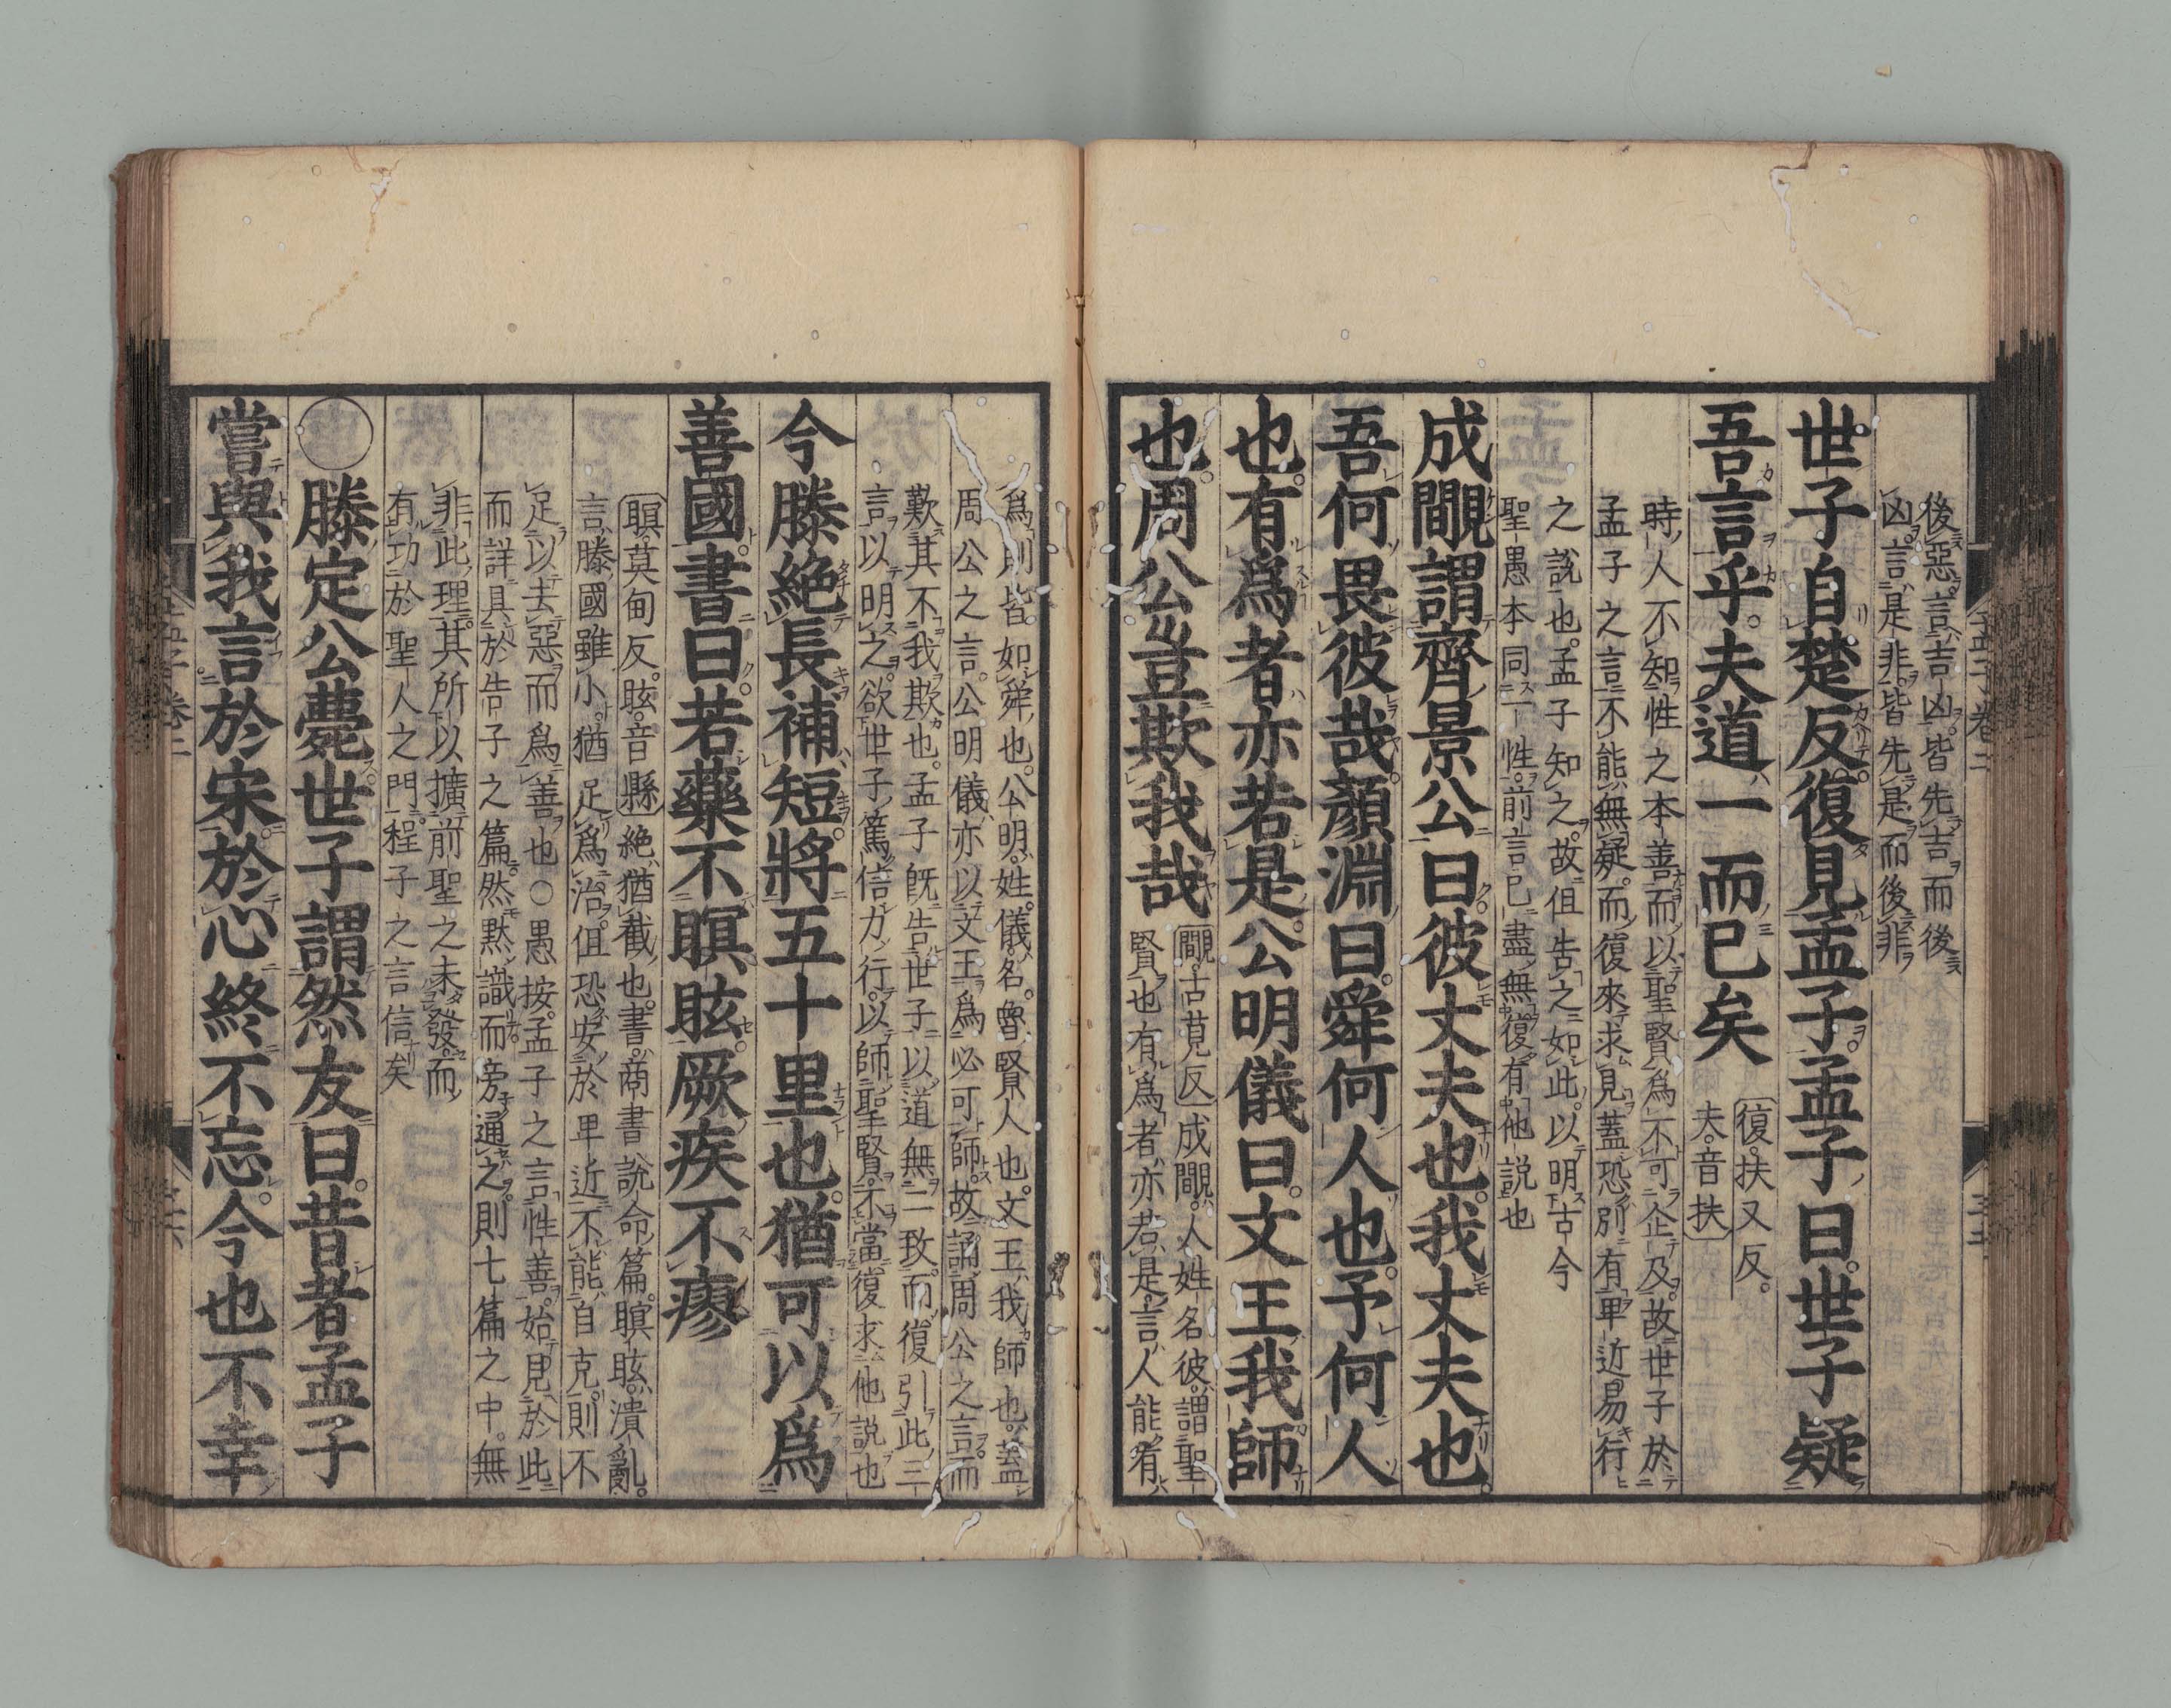 後惡。言吉凶。皆先吉而後
凶。言是非。皆先是而後非
世子自楚反。復見孟子。孟子曰。世子疑
吾言乎。夫道一而已矣
復。扶又反。
夫。音扶
時人不知性之本善。而以聖賢爲不可企及。故世子於
孟子之言不能無疑。而復來求見。蓋恐別有卑近易行
之說也。孟子知之。故但告之如此。以明古今
聖愚本同一性。前言已盡。無復有他說也
成覵謂齊景公曰。彼丈夫也。我丈夫也。
吾何畏彼哉。顏淵曰。舜何人也。予何人
也。有爲者亦若是。公明儀曰。文王我師
也。周公豈欺我哉
覵。古莧反 成覵。人姓名。彼。謂聖
賢也。有爲者亦若是。言人能有
爲。則皆如舜也。公明。姓。儀。名。魯賢人也。文王我師也。蓋
周公之言。公明儀亦以文王爲必可師。故誦周公之言。而
歎其不我欺也。孟子既告世子以道無二致。而復引此三
言以明之。欲世子篤信力行。以師聖賢。不當復求他說也
今滕絶長補短。將五十里也。猶可以爲
善國。書曰。若藥不瞑眩。厥疾不瘳
瞑。莫甸反。眩。音縣 絶。猶截也。書。商書說命篇。瞑眩。潰亂。
言滕國雖小。猶足爲治。但恐安於卑近。不能自克。則不
足以去惡而爲善也○愚按。孟子之言性善。始見於此。
而詳具於告子之篇。然默識而旁通之。則七篇之中。無
非此理。其所以擴前聖之未發。而
有功於聖人之門。程子之言信矣
○滕定公薨。世子謂然友曰。昔者孟子
嘗與我言於宋。於心終不忘。今也不幸